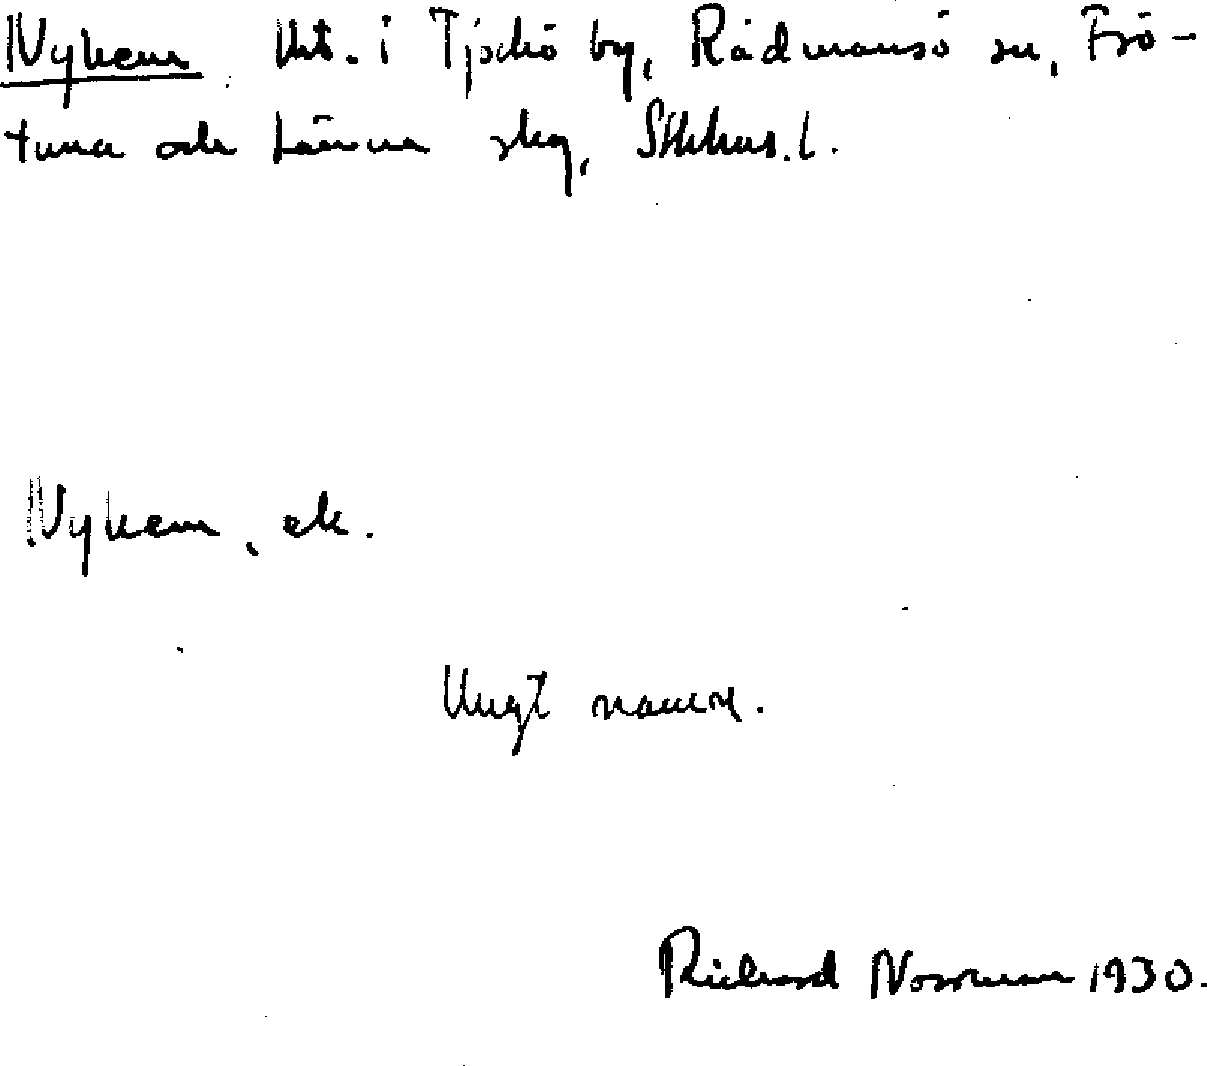 Nyhem Ht. i Tjockö by, Rådmansö sn, Frö-
tuna och Länna skg, Sthlms. l.
Nyhem, ek.
Ungt namn.
Richard Norrman 1930.